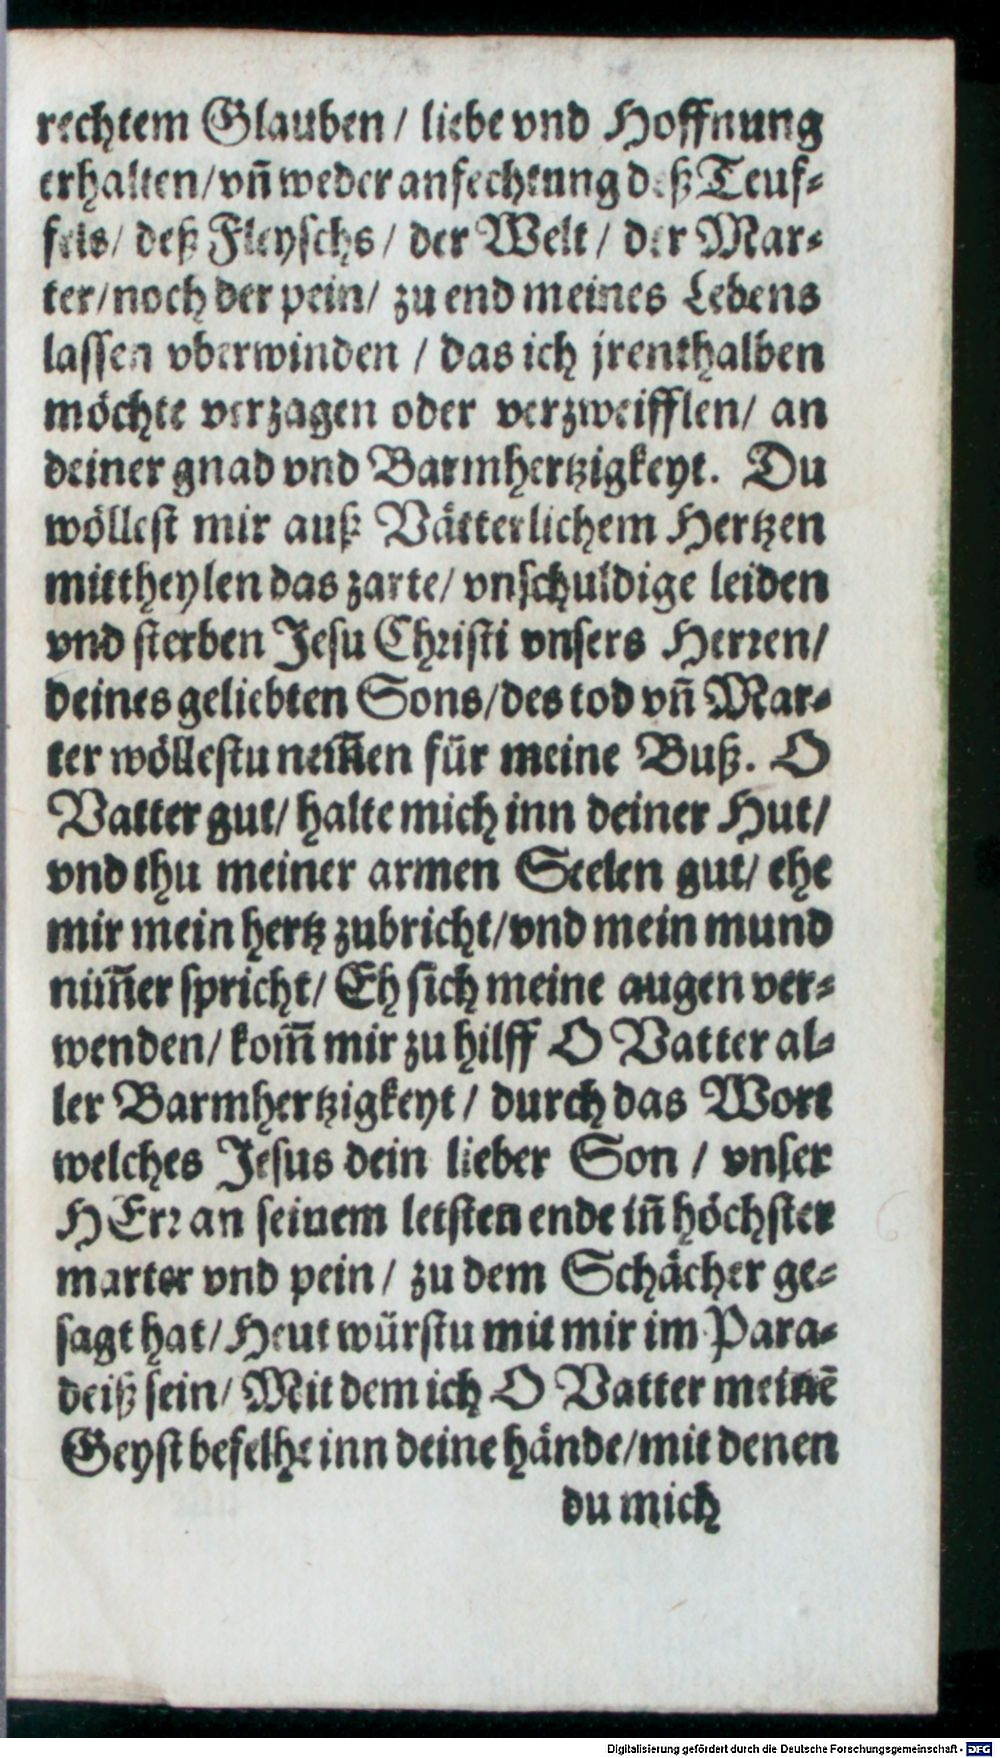 rechtem Glauben / liebe vnd Hoffnung
erhalten/vñ weder anfechtung deß Teuf-
fels/ deß Fleyschs / der Welt / der Mar-
ter/noch der pein/ zu end meines Lebens
lassen vberwinden / das ich jrenthalben
möchte verzagen oder verzweifflen/ an
deiner gnad vnd Barmhertzigkeyt. Du
wöllest mir auß Vätterlichem Hertzen
mittheylen das zarte/ vnschuldige leiden
vnd sterben Jesu Christi vnsers Herren/
deines geliebten Sons/des tod vñ Mar-
ter wöllestu nem̃en für meine Buß. O
Vatter gut/ halte mich inn deiner Hut/
vnd thu meiner armen Seelen gut/ ehe
mir mein hertz zubricht/vnd mein mund
nim̃er spricht/ Eh sich meine augen ver-
wenden/ kom̃ mir zu hilff O Vatter al-
ler Barmhertzigkeyt / durch das Wort
welches Jesus dein lieber Son / vnser
HErr an seinem letsten ende iñ höchster
marter vnd pein / zu dem Schächer ge-
sagt hat/ Heut würstu mit mir im Para-
deiß sein/ Mit dem ich O Vatter meinē
Geyst befelhe inn deine hände/mit denen
du mich
Digitalisierung gefördert durch die Deutsche Forschungsgemeinschaft - DFG